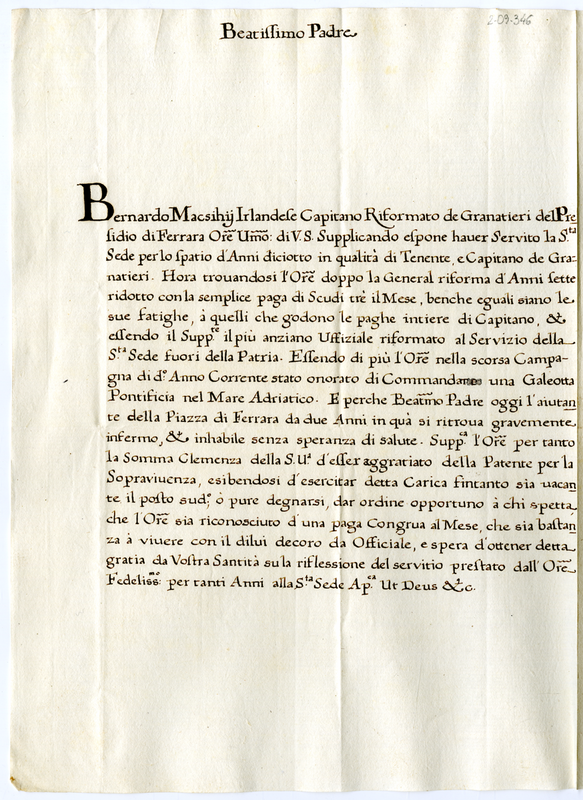 2-09-346
Beatissimo Padre
Bernardo Macsihij Irlandese Capitano Riformato de Granatieri del Pre
sidio di Ferrara Ore Umo: di V. S. Supplicando espone hauer Servito la S.ta
Sede per lo spatio d'Anni diciotto in qualità di Tenente, e Capitano de Gra=
natieri. Hora trouandosi l'Ore doppo la General riforma d'Anni sette
ridotto con la semplice paga di Scudi trè il Mese, benche eguali siano le
sue fatighe, à quelli che godono le paghe intiere di Capitano, &
essendo il Supp.te il più anziano Uffiziale riformato al Servizio della
S.ta Sede fuori della Patria. Essendo di più l'Ore nella scorsa Campa=
gna di d.o Anno Corrente stato onorato di Commandare una Galeotta
Pontificia nel Mare Adriatico. E perche Beatmo Padre oggi l'aiutan
te della Piazza di Ferrara da due Anni in quà si ritroua gravemente
infermo, & inhabile senza speranza di salute. Supp.ca l'Ore per tanto
la Somma Clemenza della S. U.a d'esser aggratiato della Patente per la
Sopraviuenza, esibendosi d'esercitar detta Carica fintanto sia uacan
te il posto sud.o, ò pure degnarsi, dar ordine opportuno à chi spetta
che l'Ore sia riconosciuto d'una paga Congrua al Mese, che sia bastan
za à viuere con il dilui decoro da Officiale, e spera d'ottener detta
gratia da Vostra Santità su la riflessione del servitio prestato dall'Ore
Fedeliss.mo per tanti Anni alla S.ta Sede Ap.ca Ut Deus &c.